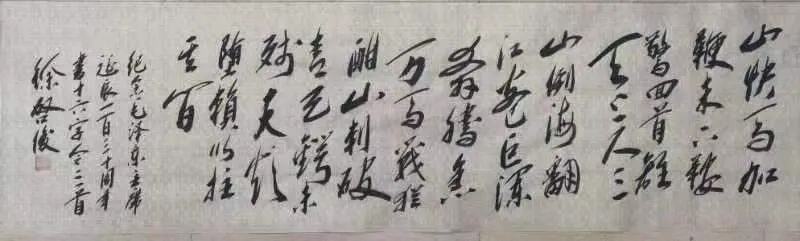 山快马加
鞭未下鞍
驚回首離
天三尺三
山倒海翻
江卷巨澜
奔腾急
万马战犹
酣山刺破
青天锷未
残天欲
堕赖以拄
其间
纪念毛泽东主席
诞辰一百三十周年
书十六字令三首
徐启俊